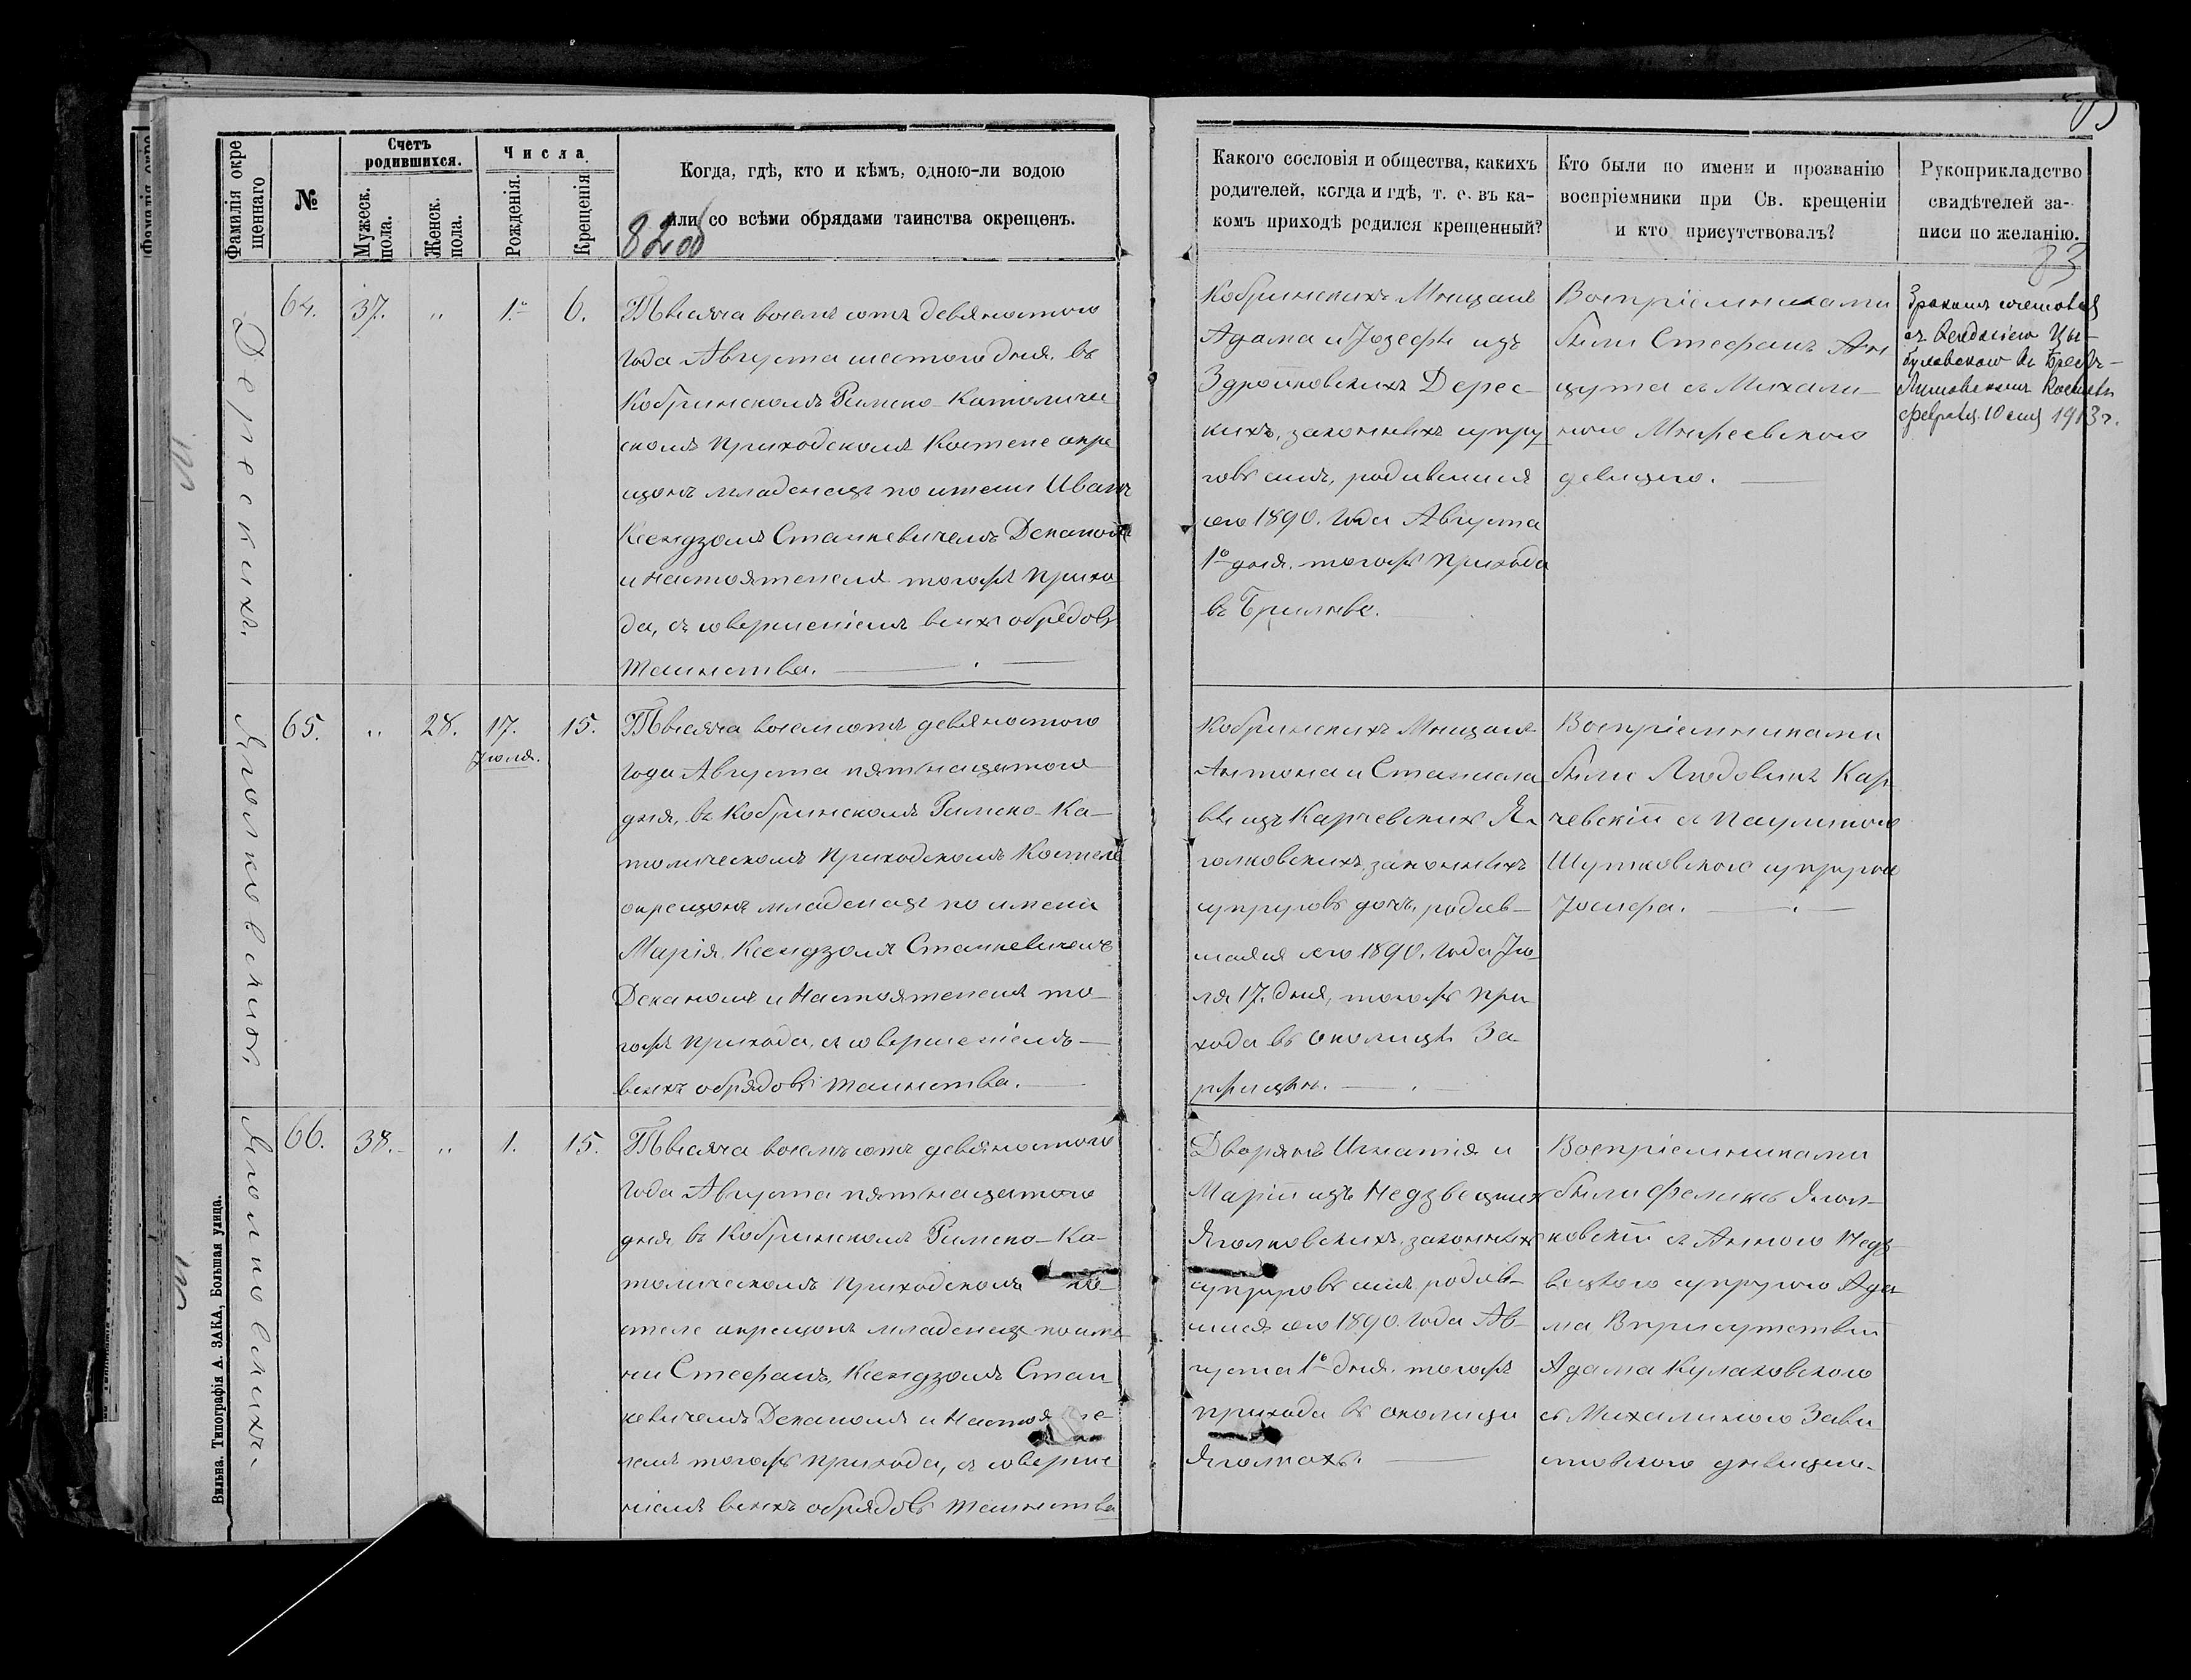 Фамилія окре
щеннаго
№
Счетъ
родившихся.
Мужеск.
пола.
Женск.
пола.
Числа
Рожденія.
Крещенія
Когда, гдѣ, кто и кѣмъ, одною-ли водою
или со всѣми обрядами таинства окрещенъ.
Какого сословія и общества, какихъ
родителей, когда и гдѣ, т. е. въ ка-
комъ приходѣ родился крещенный?
Кто были по имени и прозванію
воспріемники при Св. крещеніи
и кто присутствовалъ?
Рукоприкладство
свидѣтелей за-
писи по желанію.
83
Дерескихъ.
64.
37.
"
1.
6.
Тысяча восемь сотъ девяностого
года Августа шестого дня, въ
Кобринскомъ Римско-Католиче
скомъ Приходскомъ Костеле окре
щонъ младенецъ по имени Иванъ
Ксендзомъ Станкевичемъ Деканомъ
и Настоятелемъ тогожъ прихо
да, съ совершеніемъ всехъ обрядовъ
Таинства.
Кобринскихъ Мнщанъ
Адама и Іозефы изъ
Здройковскихъ Дерес-
кихъ, законныхъ супру
говъ сынъ, родившійся
сего 1890. года Августа
1о дня, тогожъ прихода
въ
Воспріемниками
были Стефанъ Ан
цута съ Михали-
ною
девицею.
Бракомъ сочетался
съ
въ Брестъ-
Литовскомъ Костелѣ
февраля 10 дня 1913 г.
Яголковскиот.
65.
"
28.
17.
Іюля.
15.
Тысяча восемсотъ девяностого
года Августа пятнацатого
дня, въ Кобринскомъ Римско-Ка-
толическомъ Приходскомъ Костеле
окрещонъ младенецъ по имени
Марія, Ксендзомъ Станкевичемъ
Деканомъ и Настоятелемъ то-
гожъ прихода, съ совершеніемъ
всехъ обрядовъ Таинства.
Кобринскихъ Мнщанъ
Антона и Станисла
вы изъ Карчевскихъ Я-
голковскихъ, законныхъ
супруговъ дочь, родив-
шаяся сего 1890. года Ію-
ля 17. дня, тогожъ при
хода въ околицѣ За
Воспріемниками
были Людовикъ Кар
чевскій съ Паулиною
Шутковскою супругою
Іосифа.
Яголковскихъ.
66.
38.
"
1.
15.
Тысяча восемь сотъ девяностого
года Августа пятнацатого
дня въ Кобринскомъ Римско-Ка-
толическомъ Приходскомъ Ко-
стеле окрещонъ младенецъ по име
ни Стефанъ, Ксендзомъ Стан
кевичемъ Деканомъ и Настояте-
лемъ тогожъ прихода, съ соверше
ніемъ всехъ обрядовъ Таинства
Дворянъ Игнатія и
Маріи изъ Недзвецкихъ
Яголковскихъ, законныхъ
супруговъ сынъ, родив-
шійся сего 1890. года Ав-
густа 1о дня, тогожъ
прихода въ околицы
Яголкахъ.
Воспріемниками
были Феликсъ Ягол-
ковскій съ Анною Недз
вецкою супругою Ада
ма, В присутствіи
Адама Кулаковского
съ Михалиною Зави
стовскою дѣвицею.
Вильна. Типографія А. ЗАКА, Большая улица.